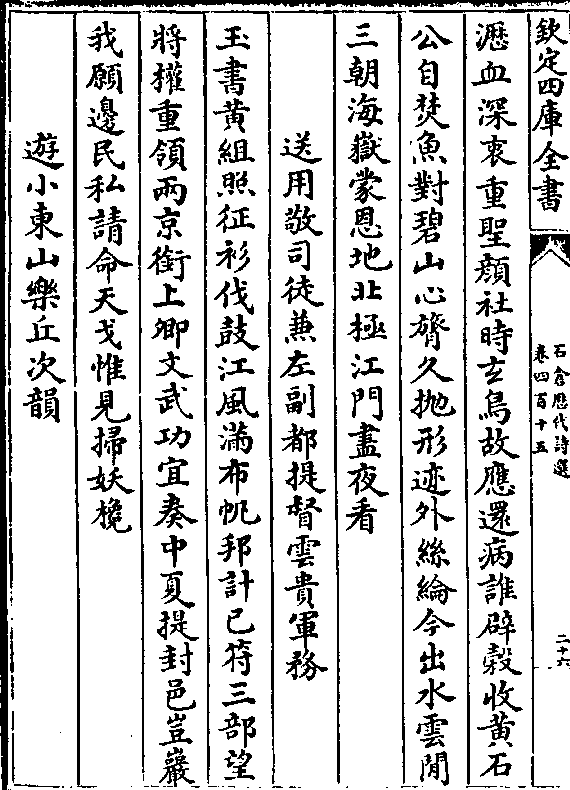 欽定四庫全書
石倉歷代詩選
卷四百十五
二十六
瀝血深衷重聖顔社時玄鳥故應還病誰辟穀收黄石
公自焚魚對碧山心膂久抛形迹外絲綸今出水雲閒
三朝海嶽蒙恩地北極江門盡夜看
送用敬司徒兼左副都提督雲貴軍務
玉書黄組照征衫伐鼓江風滿布帆邦計已符三部望
將權重領兩京銜上卿文武功宜奏中夏提封邑豈巖
我願邊民私請命天戈惟見掃妖欃
遊小東山樂丘次韻